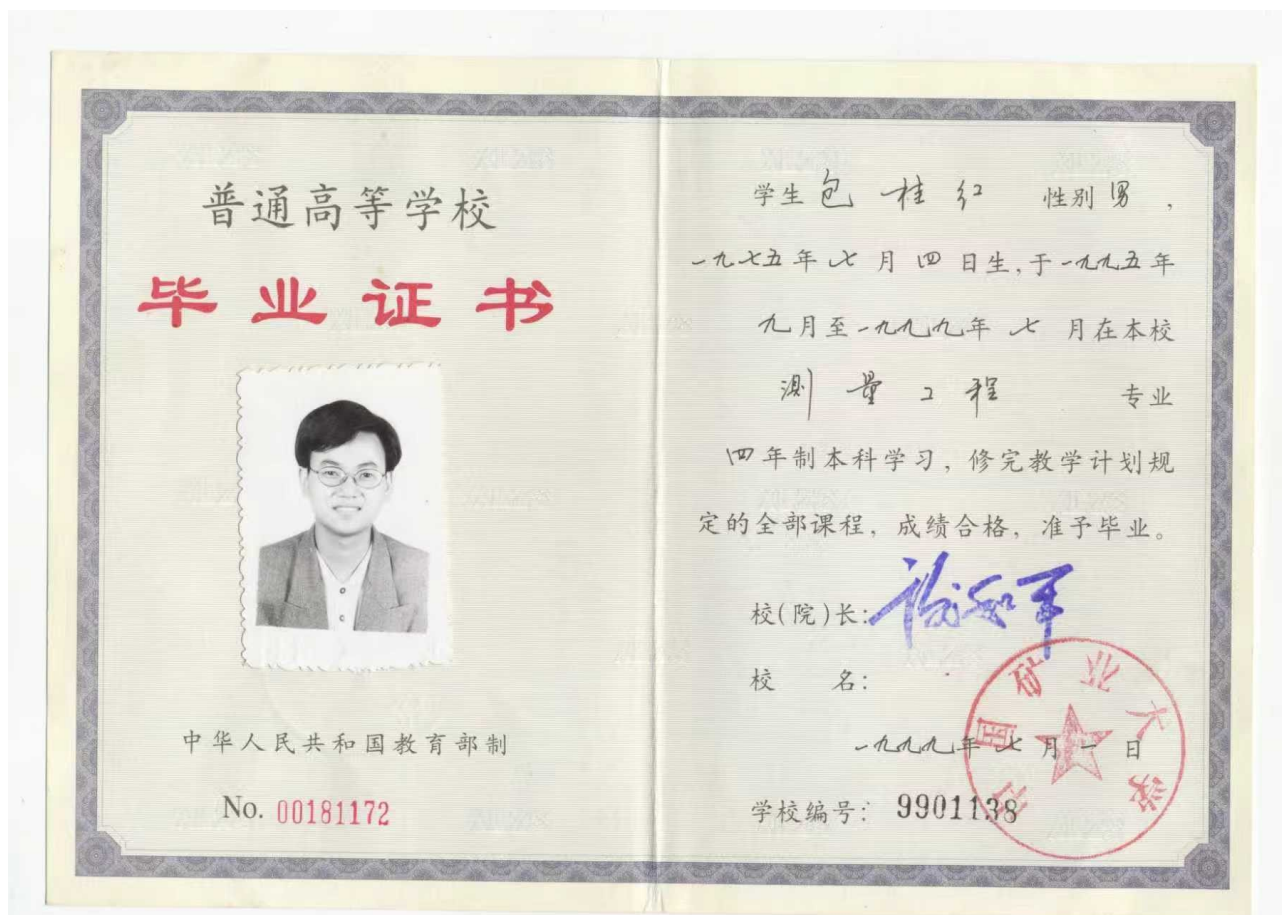 普通高等学校
毕业证书
中华人民共和国教育部制
No. 00181172
学生 包桂红 性别 男，
一九七五年七月四日生，于一九九五年
九月至一九九九年七月在本校
测量工程 专业
四年制本科学习，修完教学计划规
定的全部课程，成绩合格，准予毕业。
校(院)长：
校 名：
中国矿业大学
一九九九年七月一日
学校编号：9901138